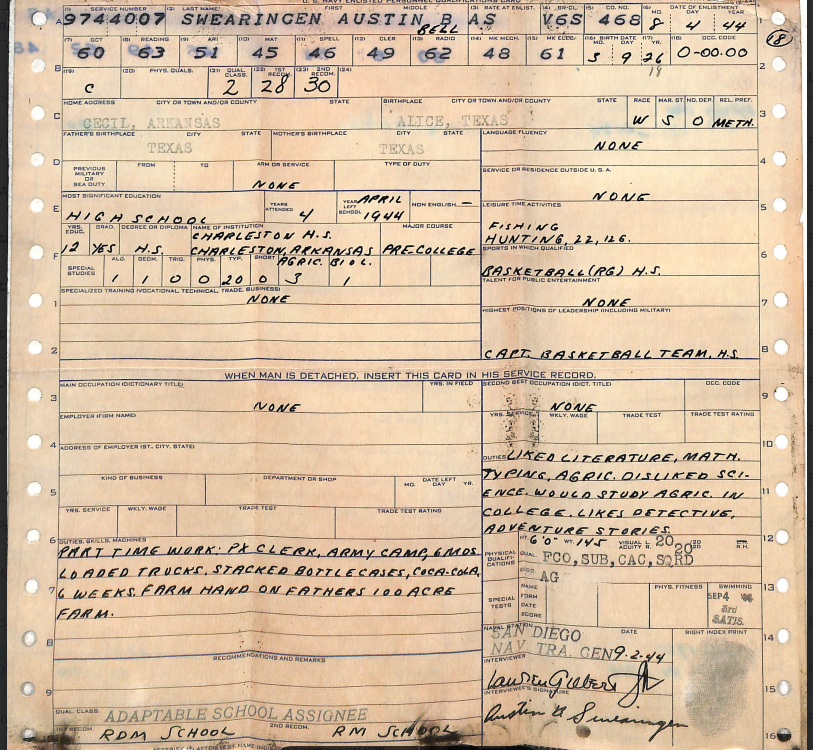 U.S. NAVY ENLISTED PERSONNEL QUALIFICATIONS CARD
(1) SERVICE NUMBER (2) LAST NAME FIRST MIDDLE (3) RATE AT ENLIST. (4) (5) CO. NO. (6) DATE OF ENLISTMENT MO. DAY YR.
9744007 SWEARINGEN AUSTIN B AS V6S 468 8 4 44
BELL
(18)
(7) GCT (8) READING (9) ARI (10) MAT (11) SPELL (12) CLER (13) RADIO (14) MK MECH. (15) MK ELEC. (16) BIRTH DATE MO. DAY (17) YR. (18) OCC. CODE
60 63 51 45 46 62 48 61 5 9 26 0-00.00
19
(19) (20) PHYS. QUALS. (21) QUAL. CLASS. (22) 1ST RECOM. (23) 2ND RECOM. (24)
C 2 28 30
HOME ADDRESS CITY OR TOWN AND/OR COUNTY STATE BIRTHPLACE CITY OR TOWN AND/OR COUNTY STATE RACE MAR. ST. NO. DEP. REL. PREF.
CECIL, ARKANSAS ALICE, TEXAS W S O METH.
FATHER'S BIRTHPLACE CITY STATE MOTHER'S BIRTHPLACE CITY STATE LANGUAGE FLUENCY
TEXAS TEXAS NONE
PREVIOUS MILITARY OR SEA DUTY FROM TO ARM OR SERVICE TYPE OF DUTY
NONE
SERVICE OR RESIDENCE OUTSIDE U.S.A.
NONE
MOST SIGNIFICANT EDUCATION YEARS ATTENDED YEAR LEFT SCHOOL NON ENGLISH
HIGH SCHOOL 4 APRIL 1944 —
LEISURE TIME ACTIVITIES
FISHING
HUNTING, 22, 12G.
YRS. EDUC. GRAD. DEGREE OR DIPLOMA NAME OF INSTITUTION MAJOR COURSE
CHARLESTON H.S.
12 YES H.S. CHARLESTON, ARKANSAS PRE-COLLEGE
SPORTS IN WHICH QUALIFIED
BASKETBALL (RG) H.S.
SPECIAL STUDIES ALG. GEOM. TRIG. PHYS. TYP. SHORT AGRIC. BIOL.
1 1 0 0 20 0 3 1
TALENT FOR PUBLIC ENTERTAINMENT
NONE
SPECIALIZED TRAINING (VOCATIONAL, TECHNICAL, TRADE, BUSINESS)
NONE
HIGHEST POSITIONS OF LEADERSHIP (INCLUDING MILITARY)
CAPT. BASKETBALL TEAM, H.S.
WHEN MAN IS DETACHED, INSERT THIS CARD IN HIS SERVICE RECORD.
MAIN OCCUPATION (DICTIONARY TITLE) YRS. IN FIELD SECOND BEST OCCUPATION (DICT. TITLE) OCC. CODE
NONE NONE
EMPLOYER (FIRM NAME) YRS. SERVICE WKLY. WAGE TRADE TEST TRADE TEST RATING
ADDRESS OF EMPLOYER (ST., CITY, STATE)
DUTIES LIKED LITERATURE, MATH.
TYPING, AGRIC. DISLIKED SCI-
ENCE. WOULD STUDY AGRIC. IN
COLLEGE. LIKES DETECTIVE,
ADVENTURE STORIES.
KIND OF BUSINESS DEPARTMENT OR SHOP DATE LEFT MO. DAY YR.
YRS. SERVICE WKLY. WAGE TRADE TEST TRADE TEST RATING
DUTIES, SKILLS, MACHINES
PART TIME WORK: PX CLERK, ARMY CAMP, 6 MOS.
LOADED TRUCKS, STACKED BOTTLE CASES, COCA-COLA,
6 WEEKS. FARM HAND ON FATHERS 100 ACRE
FARM.
PHYSICAL QUALIFI-CATIONS HT. 6'0" WT. 145 VISUAL ACUITY L. 20/20 R. 20/20
QUAL. FCO, SUB, CAC, SQRD
AG
SPECIAL TESTS NAME FORM DATE SCORE PHYS. FITNESS SWIMMING
SEP 4 '44
3rd
SATIS.
NAVAL STATION DATE RIGHT INDEX PRINT
SAN DIEGO
NAV TRA. CEN 9-2-44
INTERVIEWER
INTERVIEWEE'S SIGNATURE
Austin B Swearingen
RECOMMENDATIONS AND REMARKS
QUAL. CLASS. ADAPTABLE SCHOOL ASSIGNEE
1ST RECOM. RDM SCHOOL 2ND RECOM. RM SCHOOL